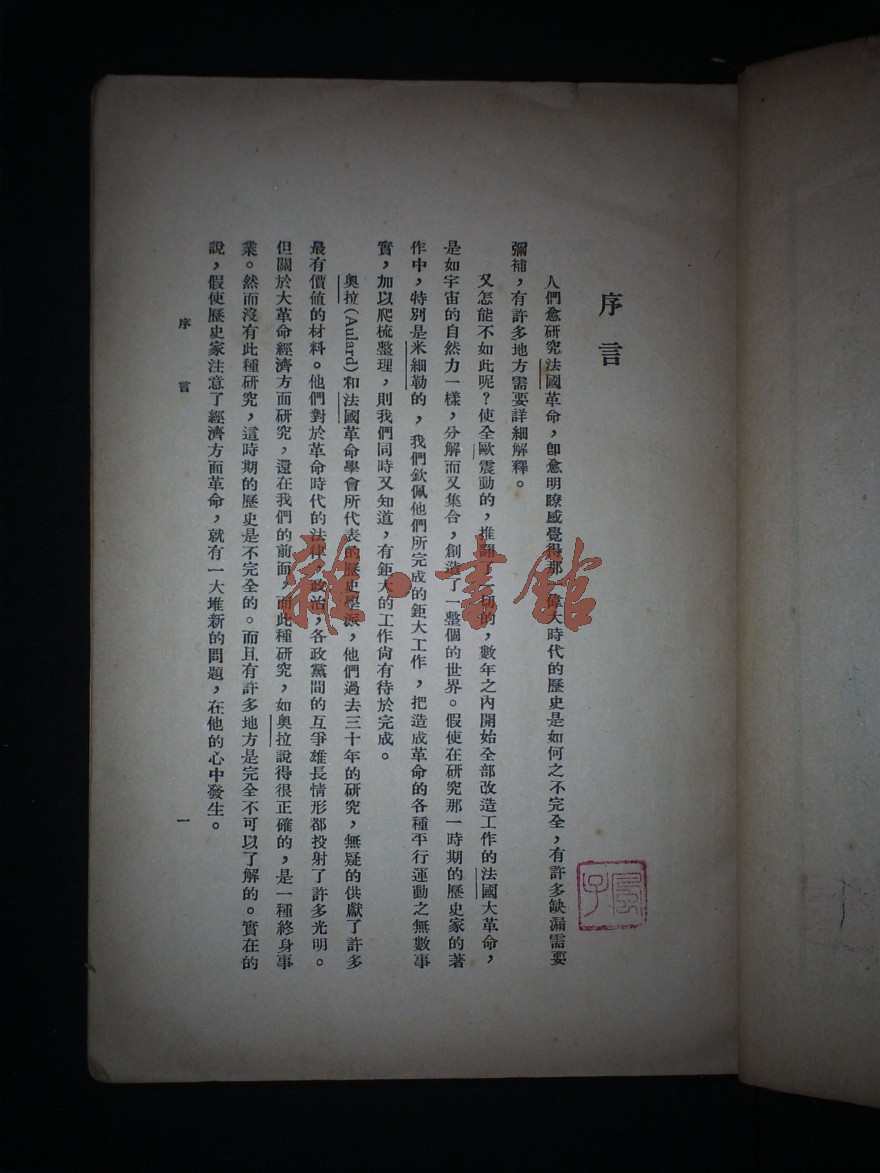 序言
人們愈研究法國革命，卽愈明瞭感覺得那一偉大時代的歷史是如何之不完全，有許多缺漏需要
彌補，有許多地方需要詳細解釋。
又怎能不如此呢？使全歐震動的，推翻了一切的，數年之內開始全部改造工作的法國大革命，
是如宇宙的自然力一樣，分解而又集合，創造了一整個的世界。假使在研究那一時期的歷史家的著
作中，特別是米細勒的，我們欽佩他們所完成的鉅大工作，把造成革命的各種平行運動之無數事
實，加以爬梳整理，則我們同時又知道，有鉅大的工作尙有待於完成。
奧拉（Aulard）和法國革命學會所代表的歷史學派，他們過去三十年的研究，無疑的供獻了許多
最有價値的材料。他們對於革命時代的法律，政治，各政黨間的互爭雄長情形都投射了許多光明。
但關於大革命經濟方面研究，還在我們的前面，而此種研究，如奧拉說得很正確的，是一種終身事
業。然而沒有此種研究，這時期的歷史是不完全的。而且有許多地方是完全不可以了解的。實在的
說，假使歷史家注意了經濟方面革命，就有一大堆新的問題，在他的心中發生。
序言
一
雜·書館